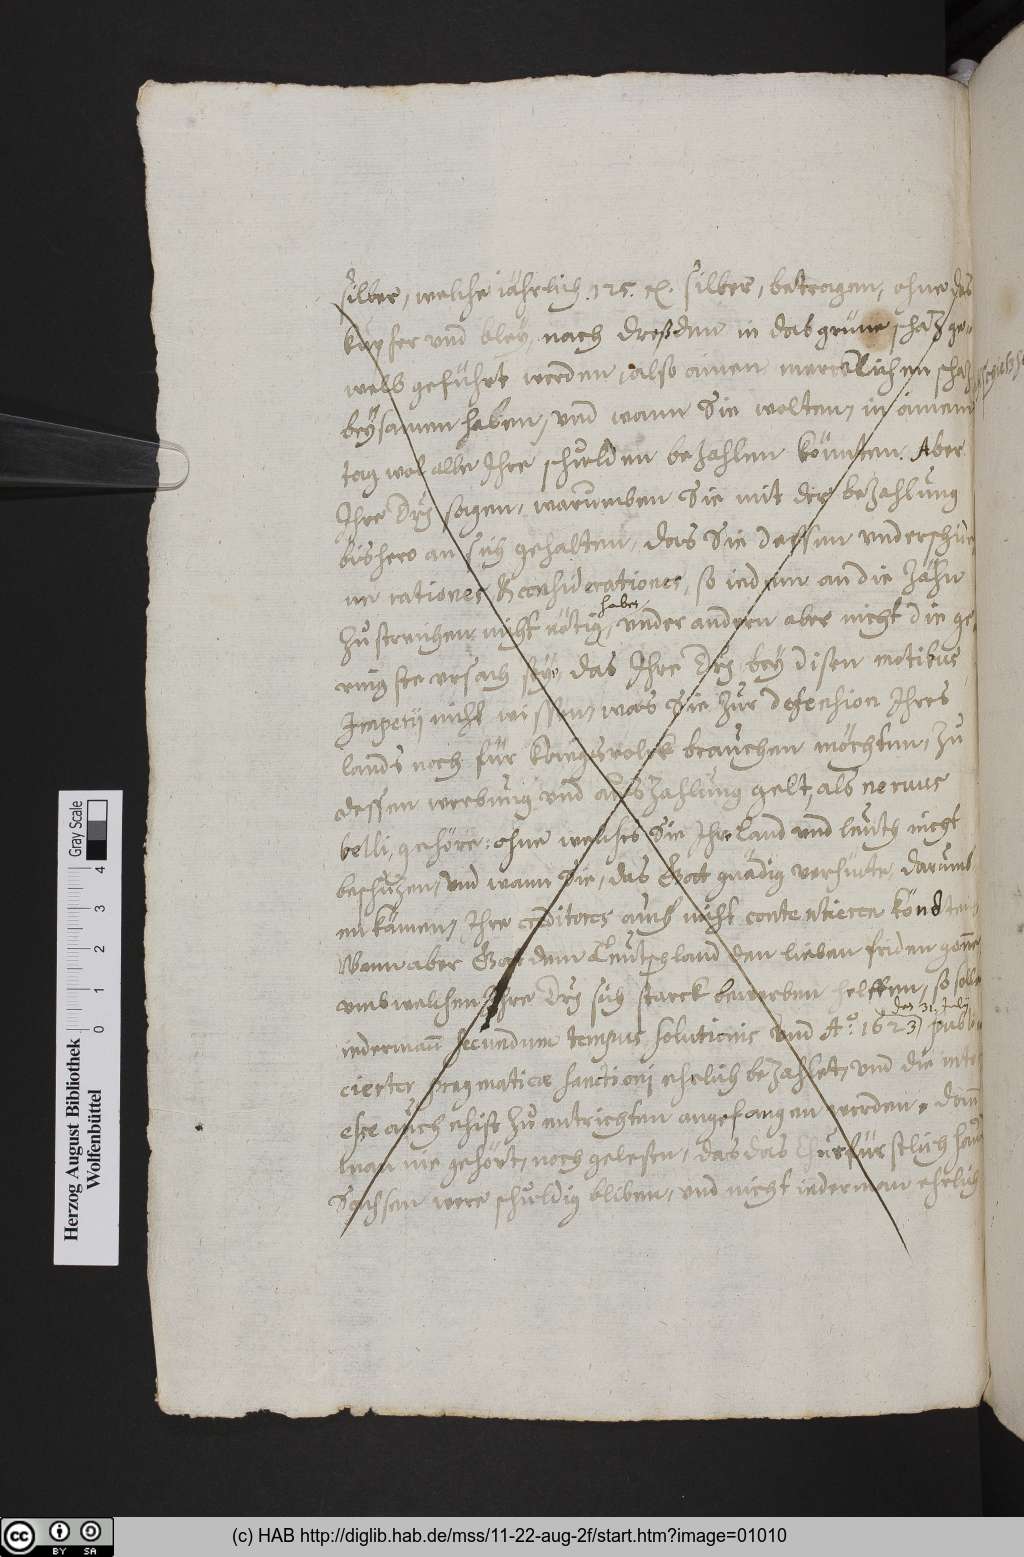 silber, welche jährlich 125. silber, betragen, ohne das
kupfer vnd bley, nach dreßden in das grüne schaz ge-
welb geführt werden, also ainen mercklichen schaz
beysamen haben, vnd wann Sie wolten, in ainem
tag wol alle Ihre schulden bezahlen könnten. Aber
Ihre Drl sagen, warumben Sie mit der bezahlung
bishero an sich gehalten, das Sie dessen vnderschide
ne rationes & considerationes, so iedem an die Zähn
haben
zustreichen nicht nötig, vnder andern aber nicht die ge-
ringste vrsach sey, das Ihre Drl bey disen motibus
Imperij nicht wissen, was Sie zur defension Ihres
lands noch für kriegsvolck brauchen möchten, zu
dessen werbung vnd auszahlung gelt, als nervus
belli, gehöre: ohne welches Sie Ihr land vnd leuth nicht
beschuzen, vnd wann Sie, das Gott gnädig verhüete, darumb
en kämen, Ihre creditores auch nicht contentieren köndten.
Wann aber Gott dem Teutschland den lieben friden gönne
vmb welchen Ihre Drl sich starck bewerben helffen, so solle
den 31. July
iederman secundum tempus solutionis vnd Aº. 1623 publi
cierter pragmaticae sanctioni ehrlich bezahlet, vnd die inter
esse auch ehist zu entrichten angefangen werden. Dann
man nie gehört, noch gelesen, das das Churfürstlich haus
Sachsen were schuldig bliben, vnd nicht iederman ehrlich
Herzog August Bibliothek
Wolfenbüttel
Gray Scale
0 1 2 3 4
cc BY SA
(c) HAB http://diglib.hab.de/mss/11-22-aug-2f/start.htm?image=01010